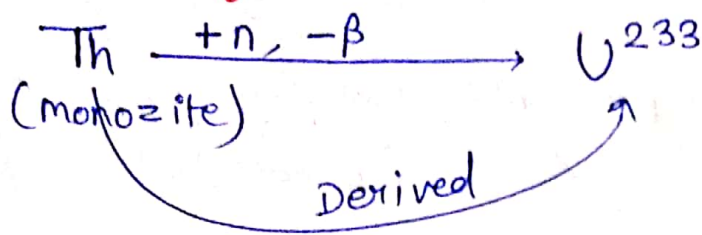 Th +n, -β U²³³
(monozite)
Derived